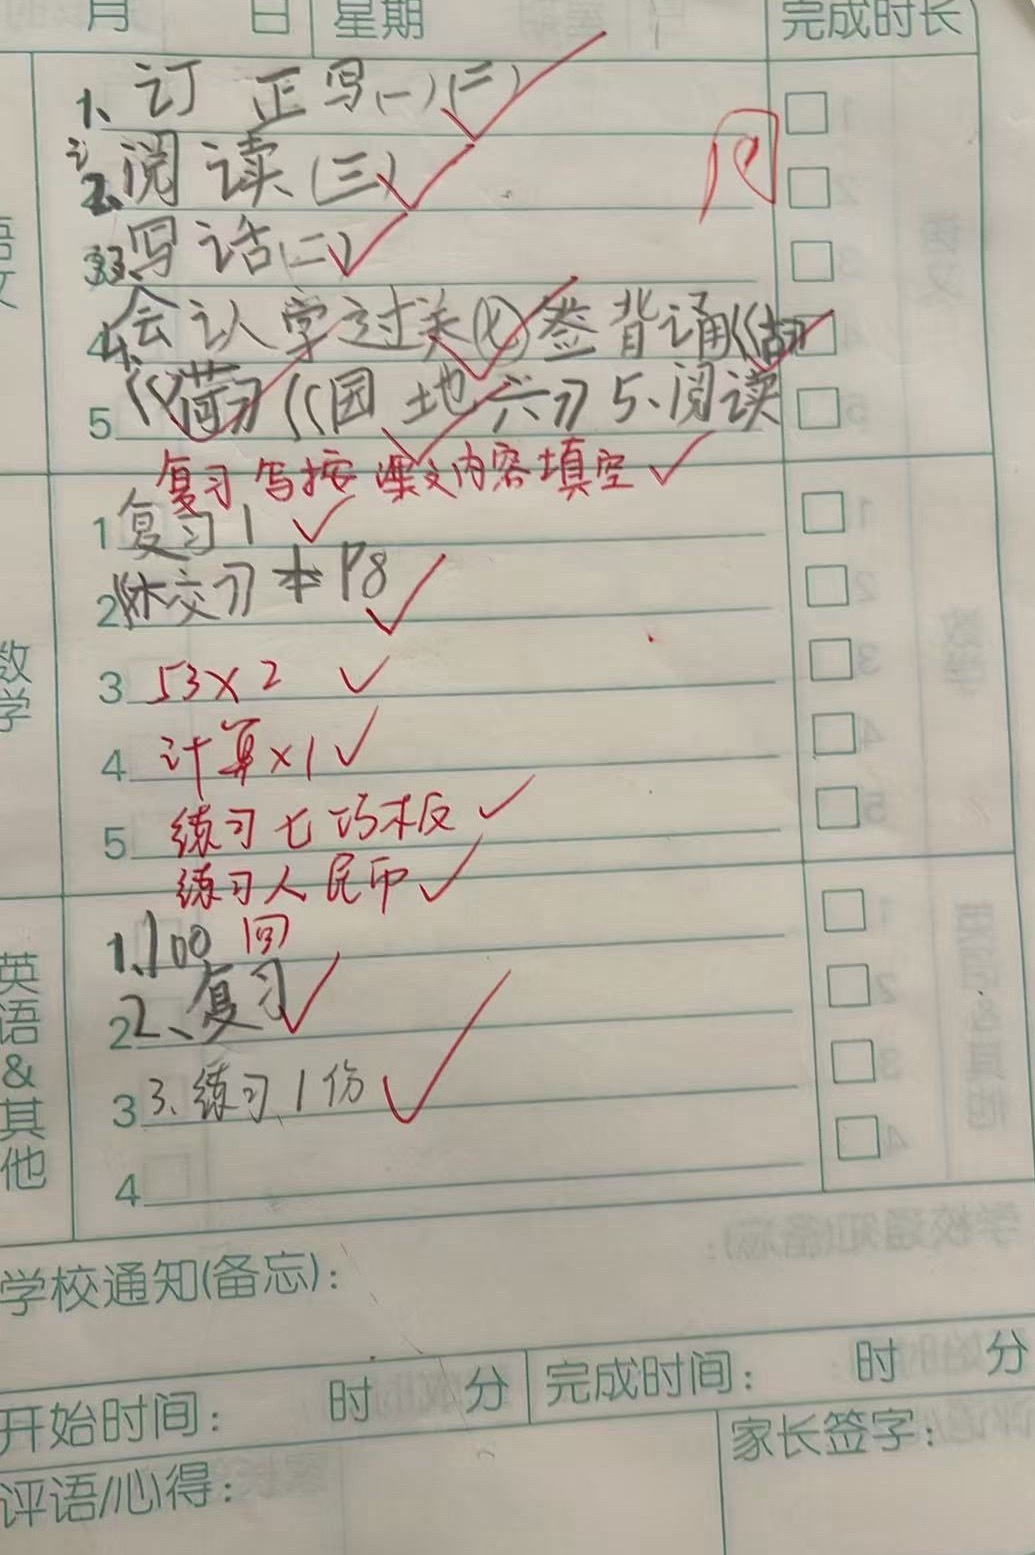 月 日 星期 完成时长
1、订正写(一)(二)
2、阅读(三)
3、写话(二)
4、会认字过关(七)签 背诵《古》
5 《荷》《园地六》 5、阅读
复习 写按课文内容填空
数学
1 复习1
2 《木交》 P8
3 53×2
4 计算×1
5 练习七巧板
练习人民币
英语&其他
1、100
2 2、复习
3 3、练习1份
4
学校通知(备忘):
开始时间: 时 分 完成时间: 时 分
评语/心得: 家长签字: